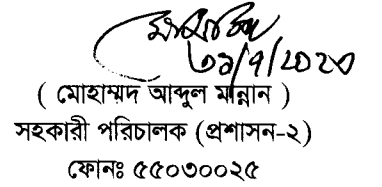 ৩১/৭/২০২০
( মোহাম্মদ আব্দুল মান্নান )
সহকারী পরিচালক (প্রশাসন-২)
ফোনঃ ৫৫০৩০০২৫